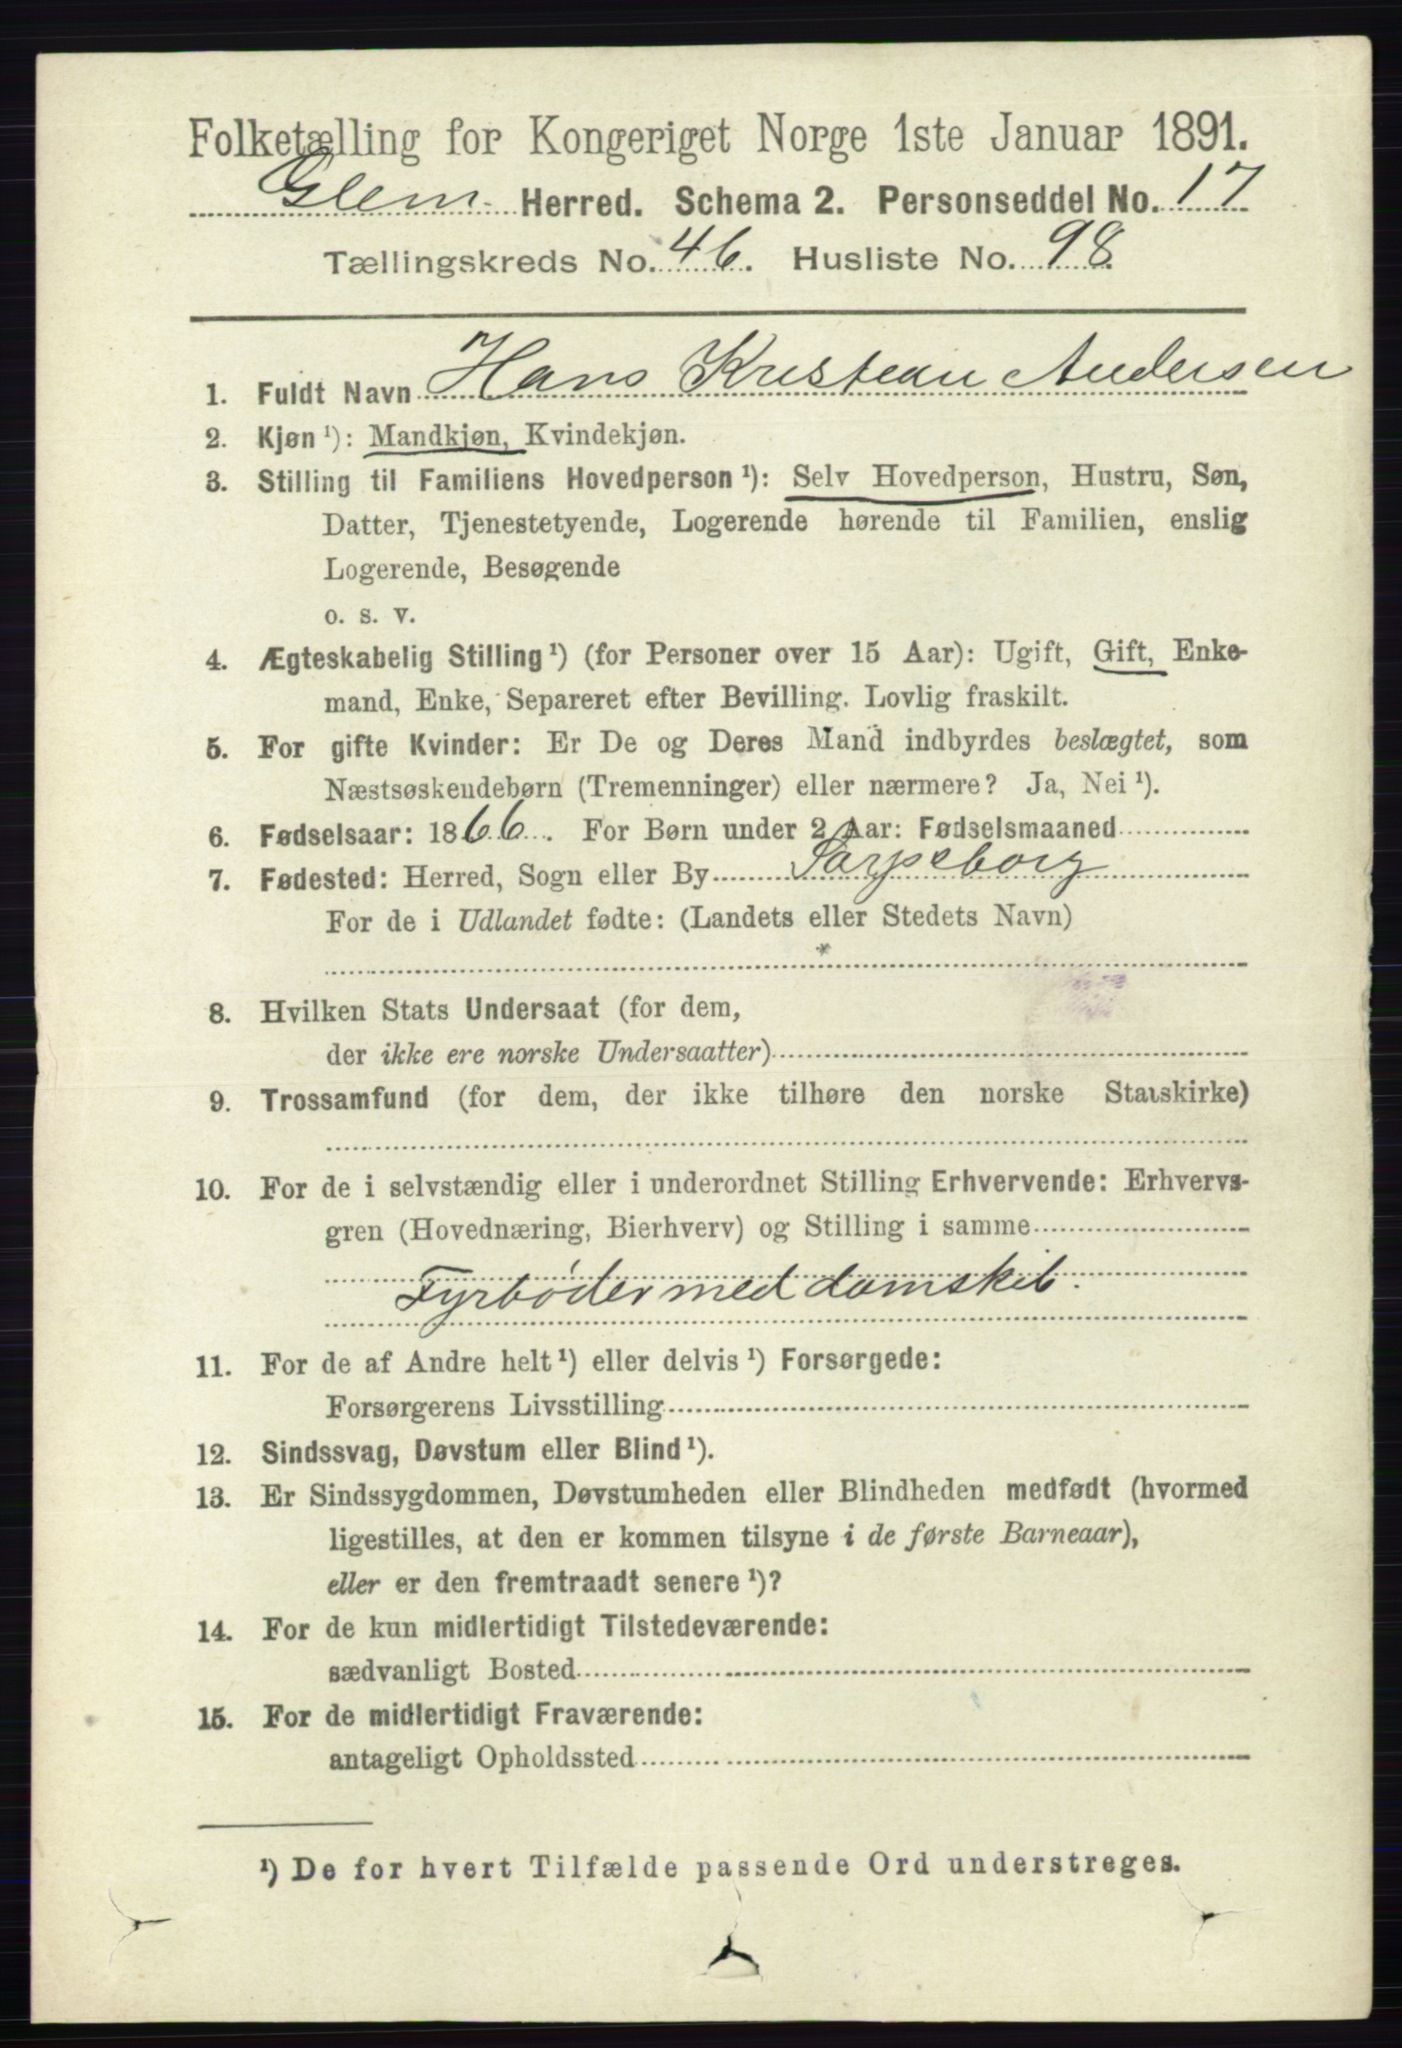 Folketælling for Kongeriget Norge 1ste Januar 1891.
Glem Herred. Schema 2. Personseddel No. 17
Tællingskreds No. 46. Husliste No. 98.
1. Fuldt Navn Hans Kristian Andersen
2. Kjøn ¹): Mandkjøn, Kvindekjøn.
3. Stilling til Familiens Hovedperson ¹): Selv Hovedperson, Hustru, Søn,
Datter, Tjenestetyende, Logerende hørende til Familien, enslig
Logerende, Besøgende
o. s. v.
4. Ægteskabelig Stilling ¹) (for Personer over 15 Aar): Ugift, Gift, Enke-
mand, Enke, Separeret efter Bevilling. Lovlig fraskilt.
5. For gifte Kvinder: Er De og Deres Mand indbyrdes beslægtet, som
Næstsøskendebørn (Tremenninger) eller nærmere? Ja, Nei ¹).
6. Fødselsaar: 1866. For Børn under 2 Aar: Fødselsmaaned
7. Fødested: Herred, Sogn eller By Sarpsborg
For de i Udlandet fødte: (Landets eller Stedets Navn)
8. Hvilken Stats Undersaat (for dem,
der ikke ere norske Undersaatter)
9. Trossamfund (for dem, der ikke tilhøre den norske Statskirke)
10. For de i selvstændig eller i underordnet Stilling Erhvervende: Erhvervs-
gren (Hovednæring, Bierhverv) og Stilling i samme
Fyrbøder med damskib.
11. For de af Andre helt ¹) eller delvis ¹) Forsørgede:
Forsørgerens Livsstilling
12. Sindssvag, Døvstum eller Blind ¹).
13. Er Sindssygdommen, Døvstumheden eller Blindheden medfødt (hvormed
ligestilles, at den er kommen tilsyne i de første Barneaar),
eller er den fremtraadt senere ¹)?
14. For de kun midlertidigt Tilstedeværende:
sædvanligt Bosted
15. For de midlertidigt Fraværende:
antageligt Opholdssted
¹) De for hvert Tilfælde passende Ord understreges.